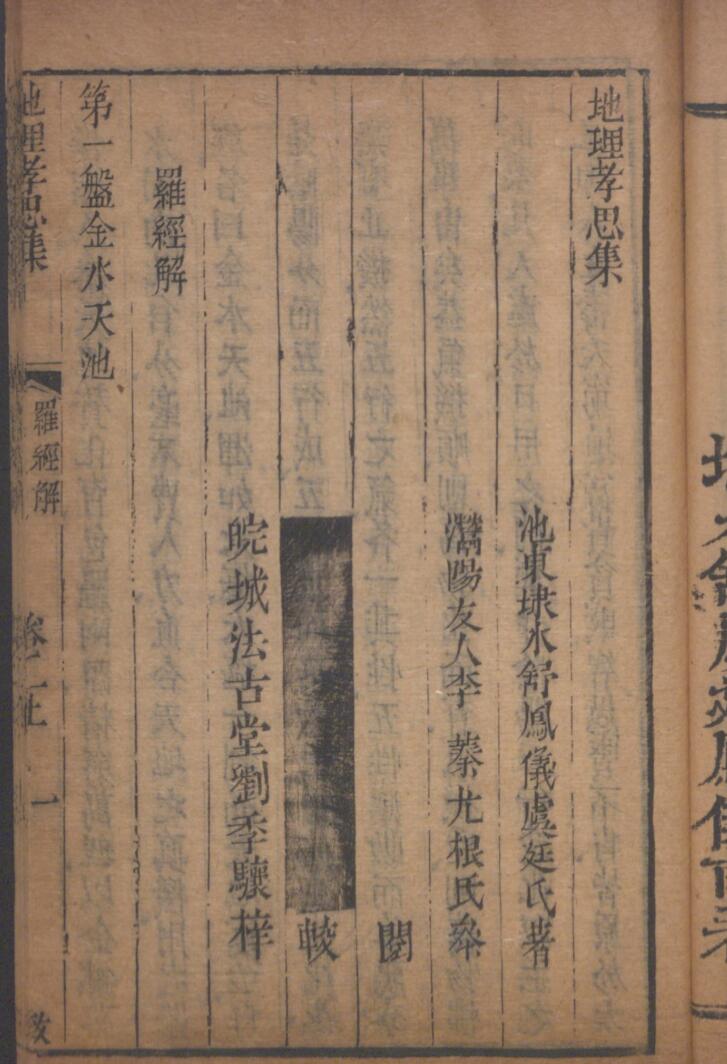 地理孝思集
池東埭水舒鳳儀虞廷氏著
陽友人李蓁尤根氏叅
閱
較
皖城法古堂劉季驤梓
羅經解
第一盤金水天池
地理孝思集
羅經解
卷二上
一